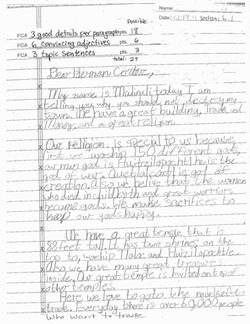 Name
Possible
Date: section: 6-1
FCA 3 good details per paragraph pts. 18
FCA 6 convincing adjectives pts. 6
FCA 3 topic sentences pts. 3
total: 27
Dear Hernan Cortez,
My name is Malindi today I am
telling you why you should not destroy my
town. We have a great building, trade and
Money, and a great religion.
Our religion is special to us because
first we worship 150 different gods,
our main god is Huitzilopochtli he is the
god of war. Quetzalcoatl is god of
creation. Also we believe that the women
who died in childbirth and great warriors
become gods. We make sacrifices to
keep our gods happy.
We have a great temple that is
88 feet tall. It has two shrines on the
top to, worship Tlaloc and Huitzilopochtli.
Also we have many great treasures
inside. Our great temple is built on top of
other temples.
Here we love to go to the market to
trade. Everyday there is over 60,000 people
who want to trade